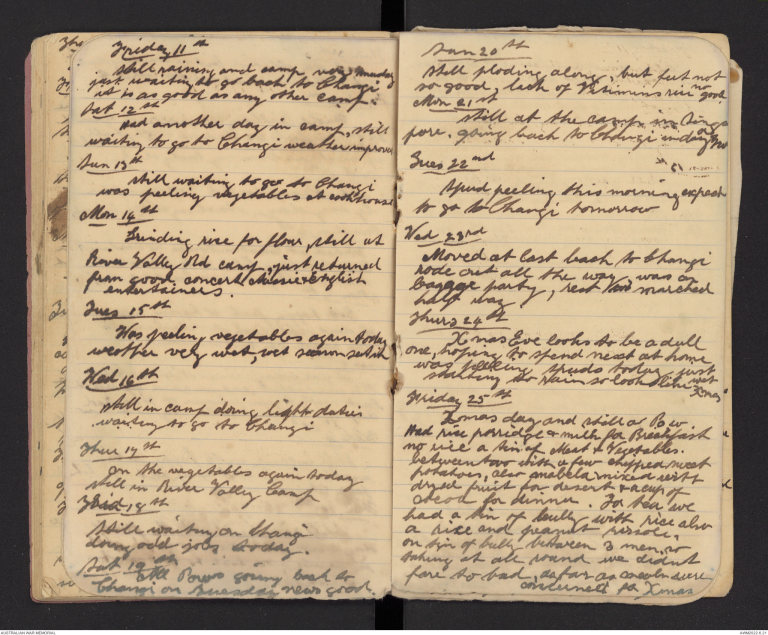 Friday 11th
Still raining and camp very muddy
just waiting to go back to Changi
it is as good as any other camp.
Sat 12th
Had another day in camp, still
waiting to go to Changi weather improved
Sun 13th
Still waiting to go to Changi
was peeling vegetables at cookhouse
Mon 14th
Grinding rice for flour, still at
River Valley Rd camp, just returned
from good concert, Aussie & English
entertainers.
Tues 15th
Was peeling vegetables again today
weather very wet, wet season set in
Wed 16th
Still in camp doing light duties
waiting to go to Changi
Thur 17th
On the vegetables again today
still in River Valley Camp
Frid 18th
Still waiting on Changi
doing odd jobs today.
Sat 19th
All Pows going back to
Changi on Tuesday news good.
Sun 20th
Still ploding along, but feet not
so good, lack of Vitimins rice no good
Mon 21st
Still at the camp in Singa
pore, going back to Changi in day or two
Tues 22nd
Spud peeling this morning expect
to go to Changi tomorrow
Wed 23rd
Moved at last back to Changi
rode out all the way, was on
baggage party, rest marched
half way
Thurs 24th
Xmas Eve looks to be a dull
one, hoping to spend next at home
was peeling spuds today, just
starting to rain so looks like wet
Xmas
Friday 25th
Xmas day and still a Pow
Had rice porridge & milk for Breakfast
no rice a tin of Meat & Vegetables.
between two with a few chopped sweet
potatoes, also mixed with
dryed fruit for desert & a cup of
for dinner. For tea we
had a tin of bully with rice also
a rice and peanut rissole,
on tin of bully between 3 men, so
taking it all round we didnt
fare to bad, as far as were
concerned for Xmas
AUSTRALIAN WAR MEMORIAL